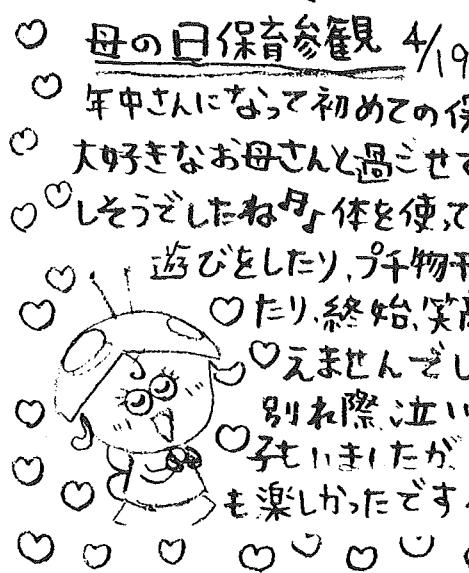 母の日保育参観 4/19
年中さんになって初めての保
大好きなお母さんと過ごせて
しそうでしたね♪体を使って
遊びをしたり、プチ物干
たり、終始、笑
えませんでし
別れ際泣い
子もいましたが、
も楽しかったです